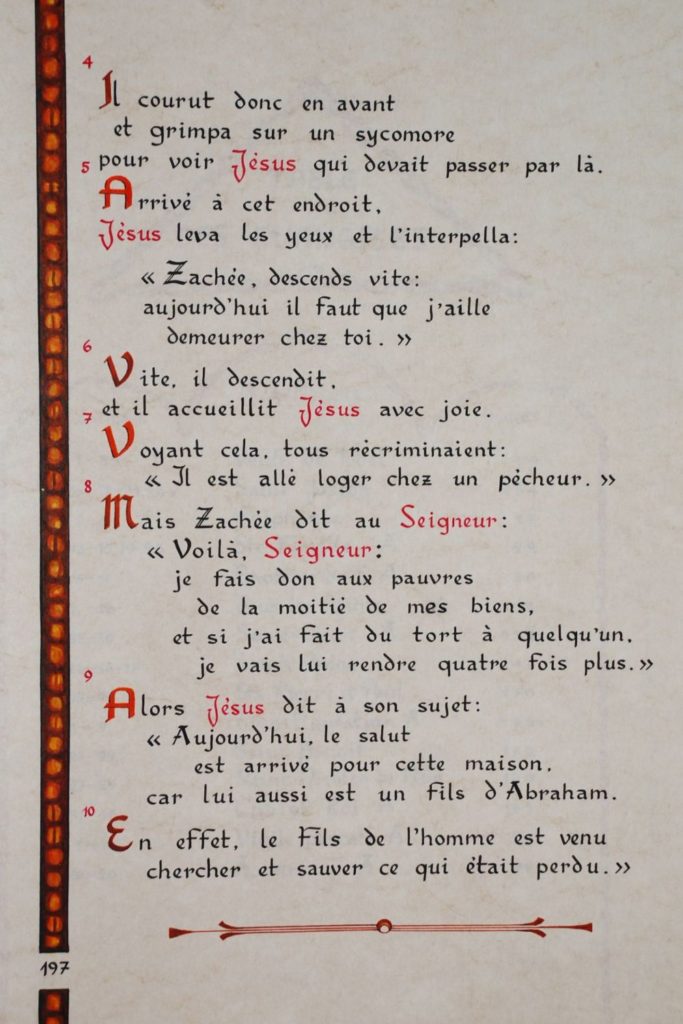 4
Il courut donc en avant
et grimpa sur un sycomore
5 pour voir Jésus qui devait passer par là.
Arrivé à cet endroit,
Jésus leva les yeux et l'interpella:
« Zachée, descends vite:
aujourd'hui il faut que j'aille
demeurer chez toi. »
6
Vite, il descendit,
7 et il accueillit Jésus avec joie.
Voyant cela, tous récriminaient:
8 « Il est allé loger chez un pécheur. »
Mais Zachée dit au Seigneur:
« Voilà, Seigneur:
je fais don aux pauvres
de la moitié de mes biens,
et si j'ai fait du tort à quelqu'un,
je vais lui rendre quatre fois plus. »
9
Alors Jésus dit à son sujet:
« Aujourd'hui, le salut
est arrivé pour cette maison,
car lui aussi est un fils d'Abraham.
10
En effet, le Fils de l'homme est venu
chercher et sauver ce qui était perdu. »
197